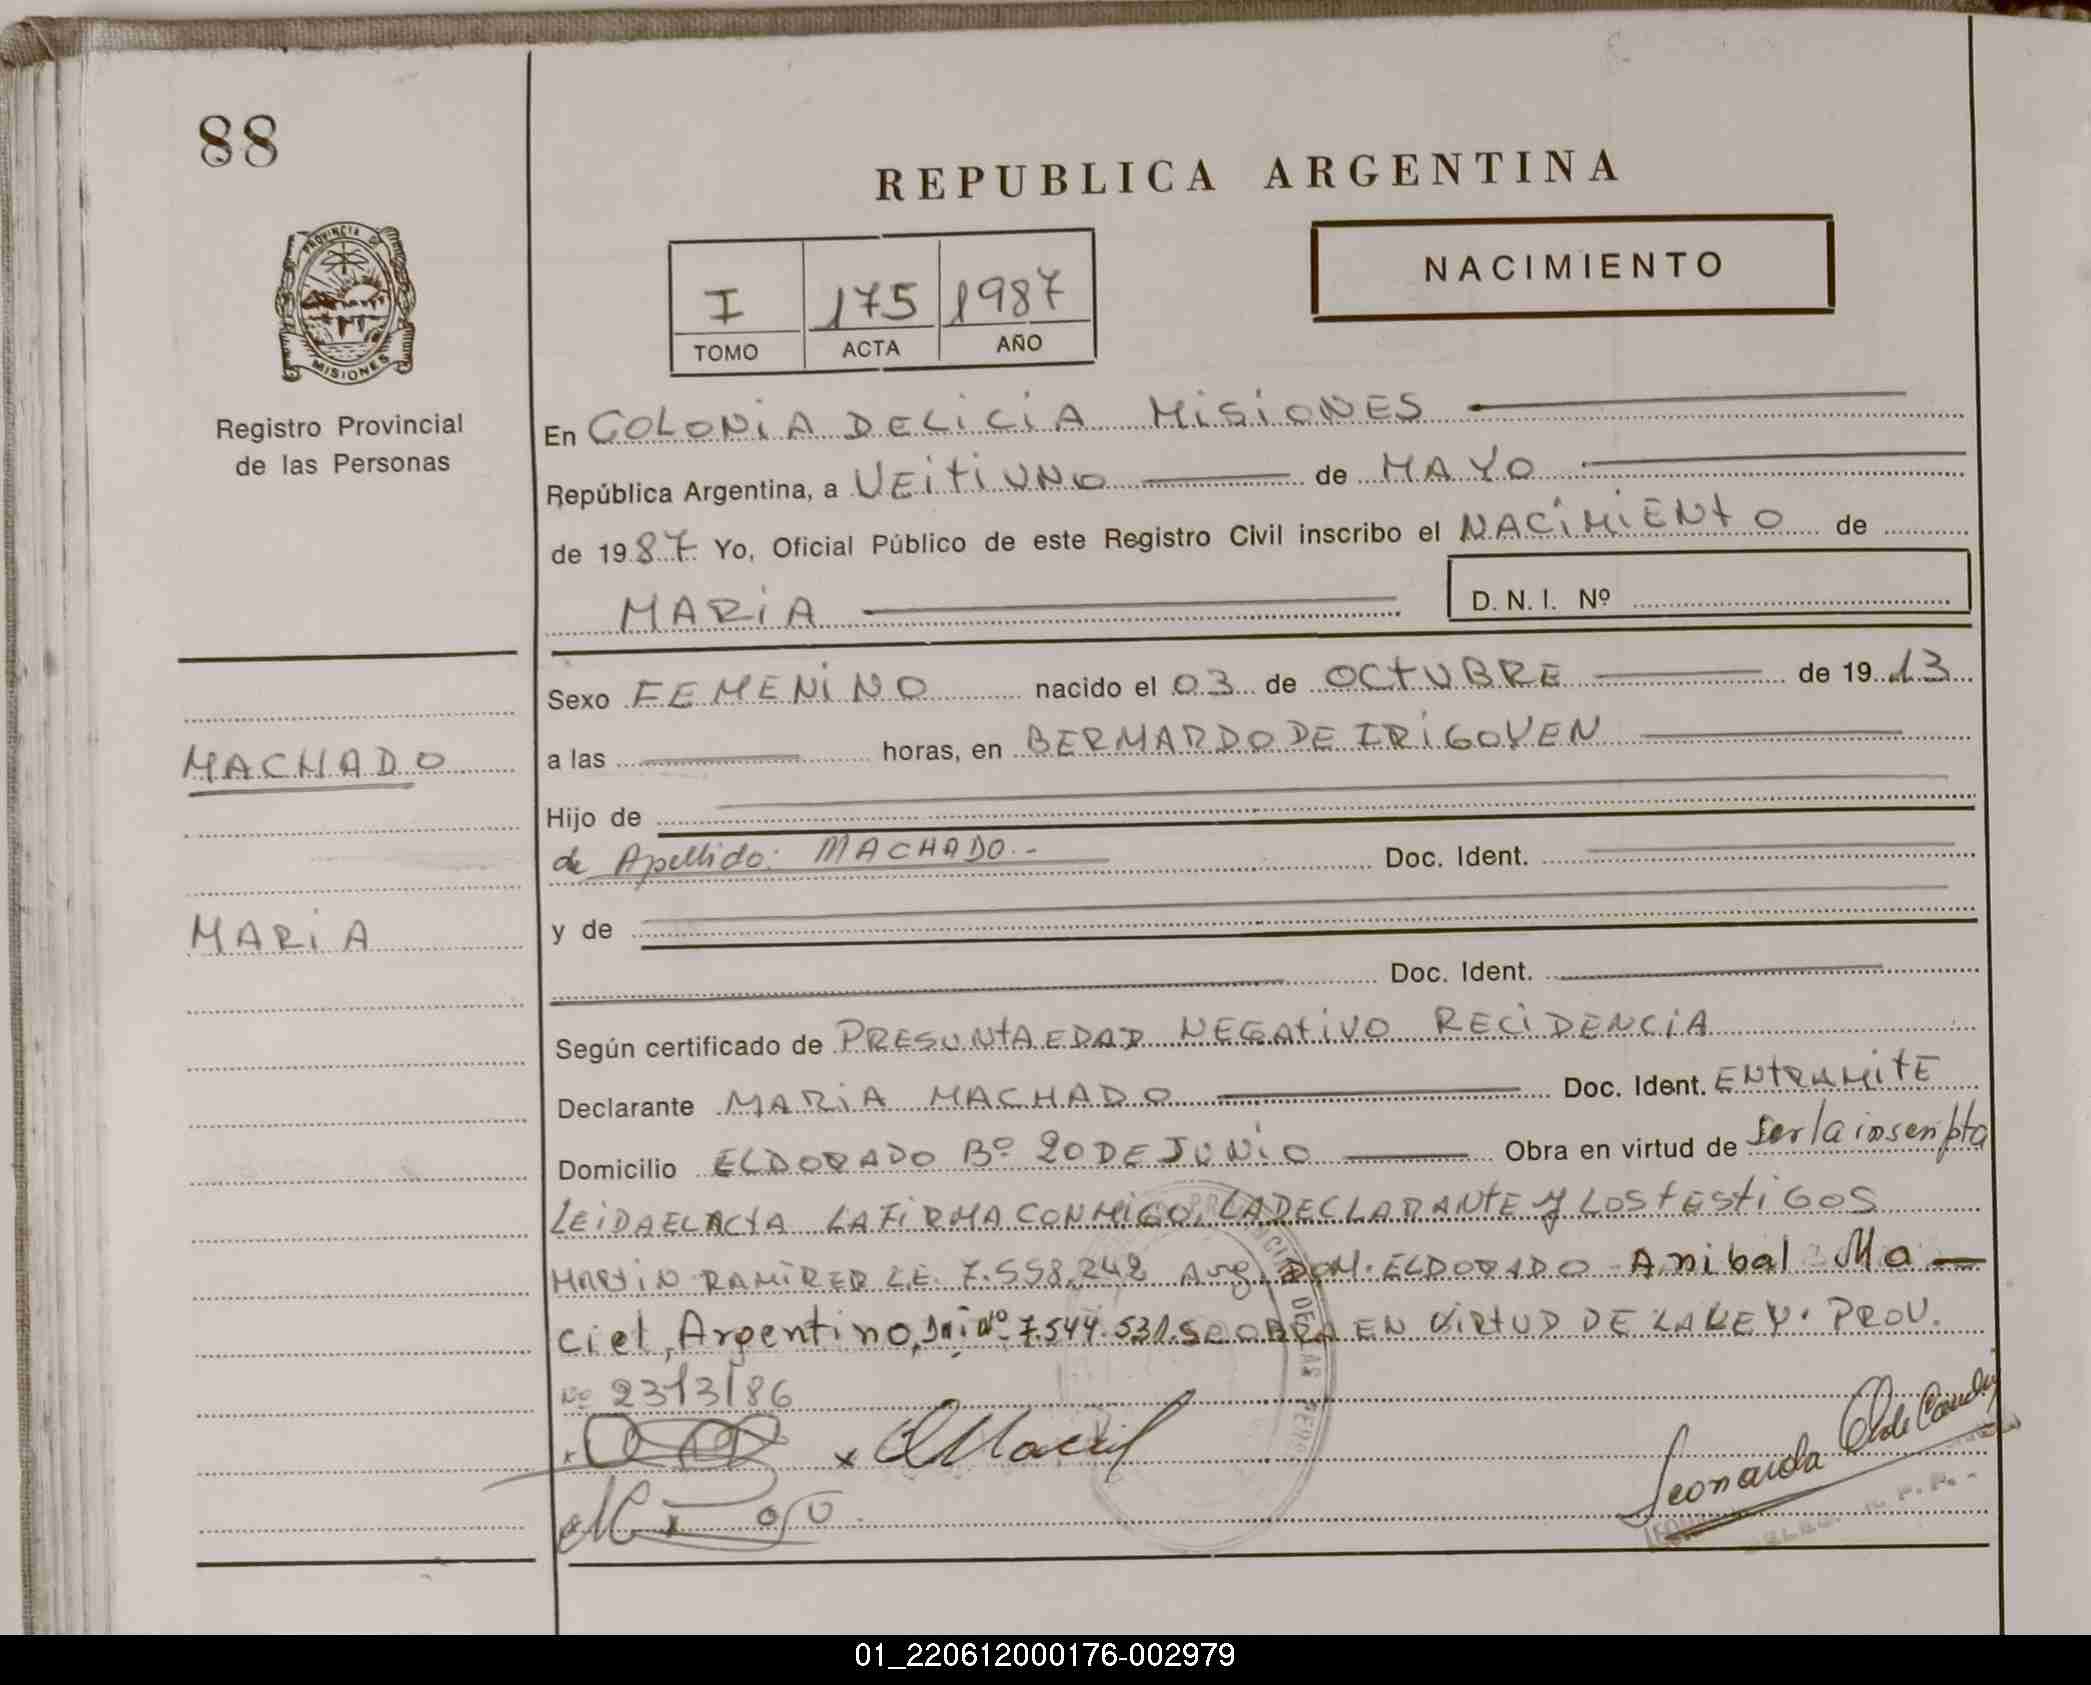 88
REPUBLICA ARGENTINA
PROVINCIA DE
MISIONES
NACIMIENTO
I 175 1987
TOMO ACTA AÑO
Registro Provincial
de las Personas
En COLONIA DELICIA MISIONES
República Argentina, a VEITIUNO de MAYO
de 1987. Yo, Oficial Público de este Registro Civil inscribo el NACIMIENTO de
MARIA D. N. I. Nº
Sexo FEMENINO nacido el 03 de OCTUBRE de 1913
MACHADO
a las horas, en BERMARDO DE IRIGOYEN
Hijo de
de Apellido: MACHADO.- Doc. Ident.
MARIA
y de
Doc. Ident.
Según certificado de PRESUNTA EDAD NEGATIVO RECIDENCIA
Declarante MARIA MACHADO Doc. Ident. ENTRAMITE
Domicilio ELDORADO Bº 20 DE JUNIO Obra en virtud de ser la inscripta
LEIDA EL ACTA LA FIRMA CONMIGO, LA DECLARANTE y LOS TESTIGOS
MARTIN RAMIREZ L.E. 7.558.242 Arg. DOM. ELDORADO Anibal Ma-
ciel, Argentino, Dni Nº 7.544.531. SE OBRA EN VIRTUD DE LA LEY. PROV.
Nº 2313/86
x AMaciel
Leonarda
01_220612000176-002979